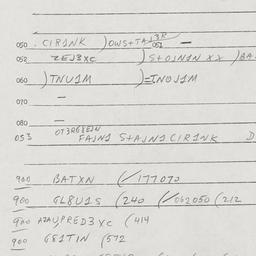 050 . CIR1NK )OWS+TAJ3R
051 —
052 ZEJ3XC )S+OJN1N XX )BA
060 )TNU1M )=INOJ1M
070 —
080 —
053 OT3RGEEJN
FAJN1 S+AJN1CIR1NK D
900 BATXN (/177070
900 GL8U1S (240 (/062050 (212
900 A2AUPRED3XC (414
900 GE1TIN (572